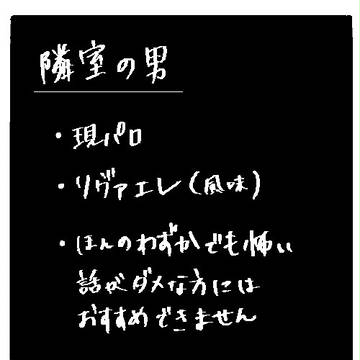 隣室の男
・現パロ
・リヴァエレ(風味)
・ほんのわずかでも怖い
話がダメな方には
おすすめできません